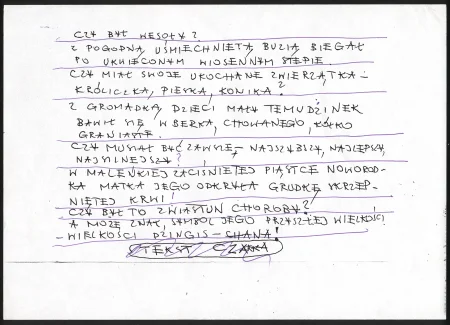 CZY BYŁ WESOŁY?
Z POGODNĄ, UŚMIECHNIĘTĄ BUZIĄ BIEGAŁ
PO UKWIECONYM WIOSENNYM STEPIE.
CZY MIAŁ SWOJE UKOCHANE ZWIERZĄTKA –
KRÓLICZKA, PIESKA, KONIKA?
Z GROMADKĄ DZIECI MAŁY TEMUDŻINEK
BAWIŁ SIĘ W BERKA, CHOWANEGO, KÓŁKO
GRANIASTE.
CZY MUSIAŁ BYĆ ZAWSZE – NAJSZYBSZY, NAJLEPSZY,
NAJSILNIEJSZY?
W MALEŃKIEJ ZACIŚNIĘTEJ PIĄSTCE NOWOROD-
KA MATKA JEGO ODKRYŁA GRUDKĘ SKRZEP-
NIĘTEJ KRWI!
CZY BYŁ TO ZWIASTUN CHOROBY?
A MOŻE ZNAK, SYMBOL JEGO PRZYSZŁEJ WIELKOŚCI
– WIELKOŚCI DŻINGIS – CHANA!
TEKST